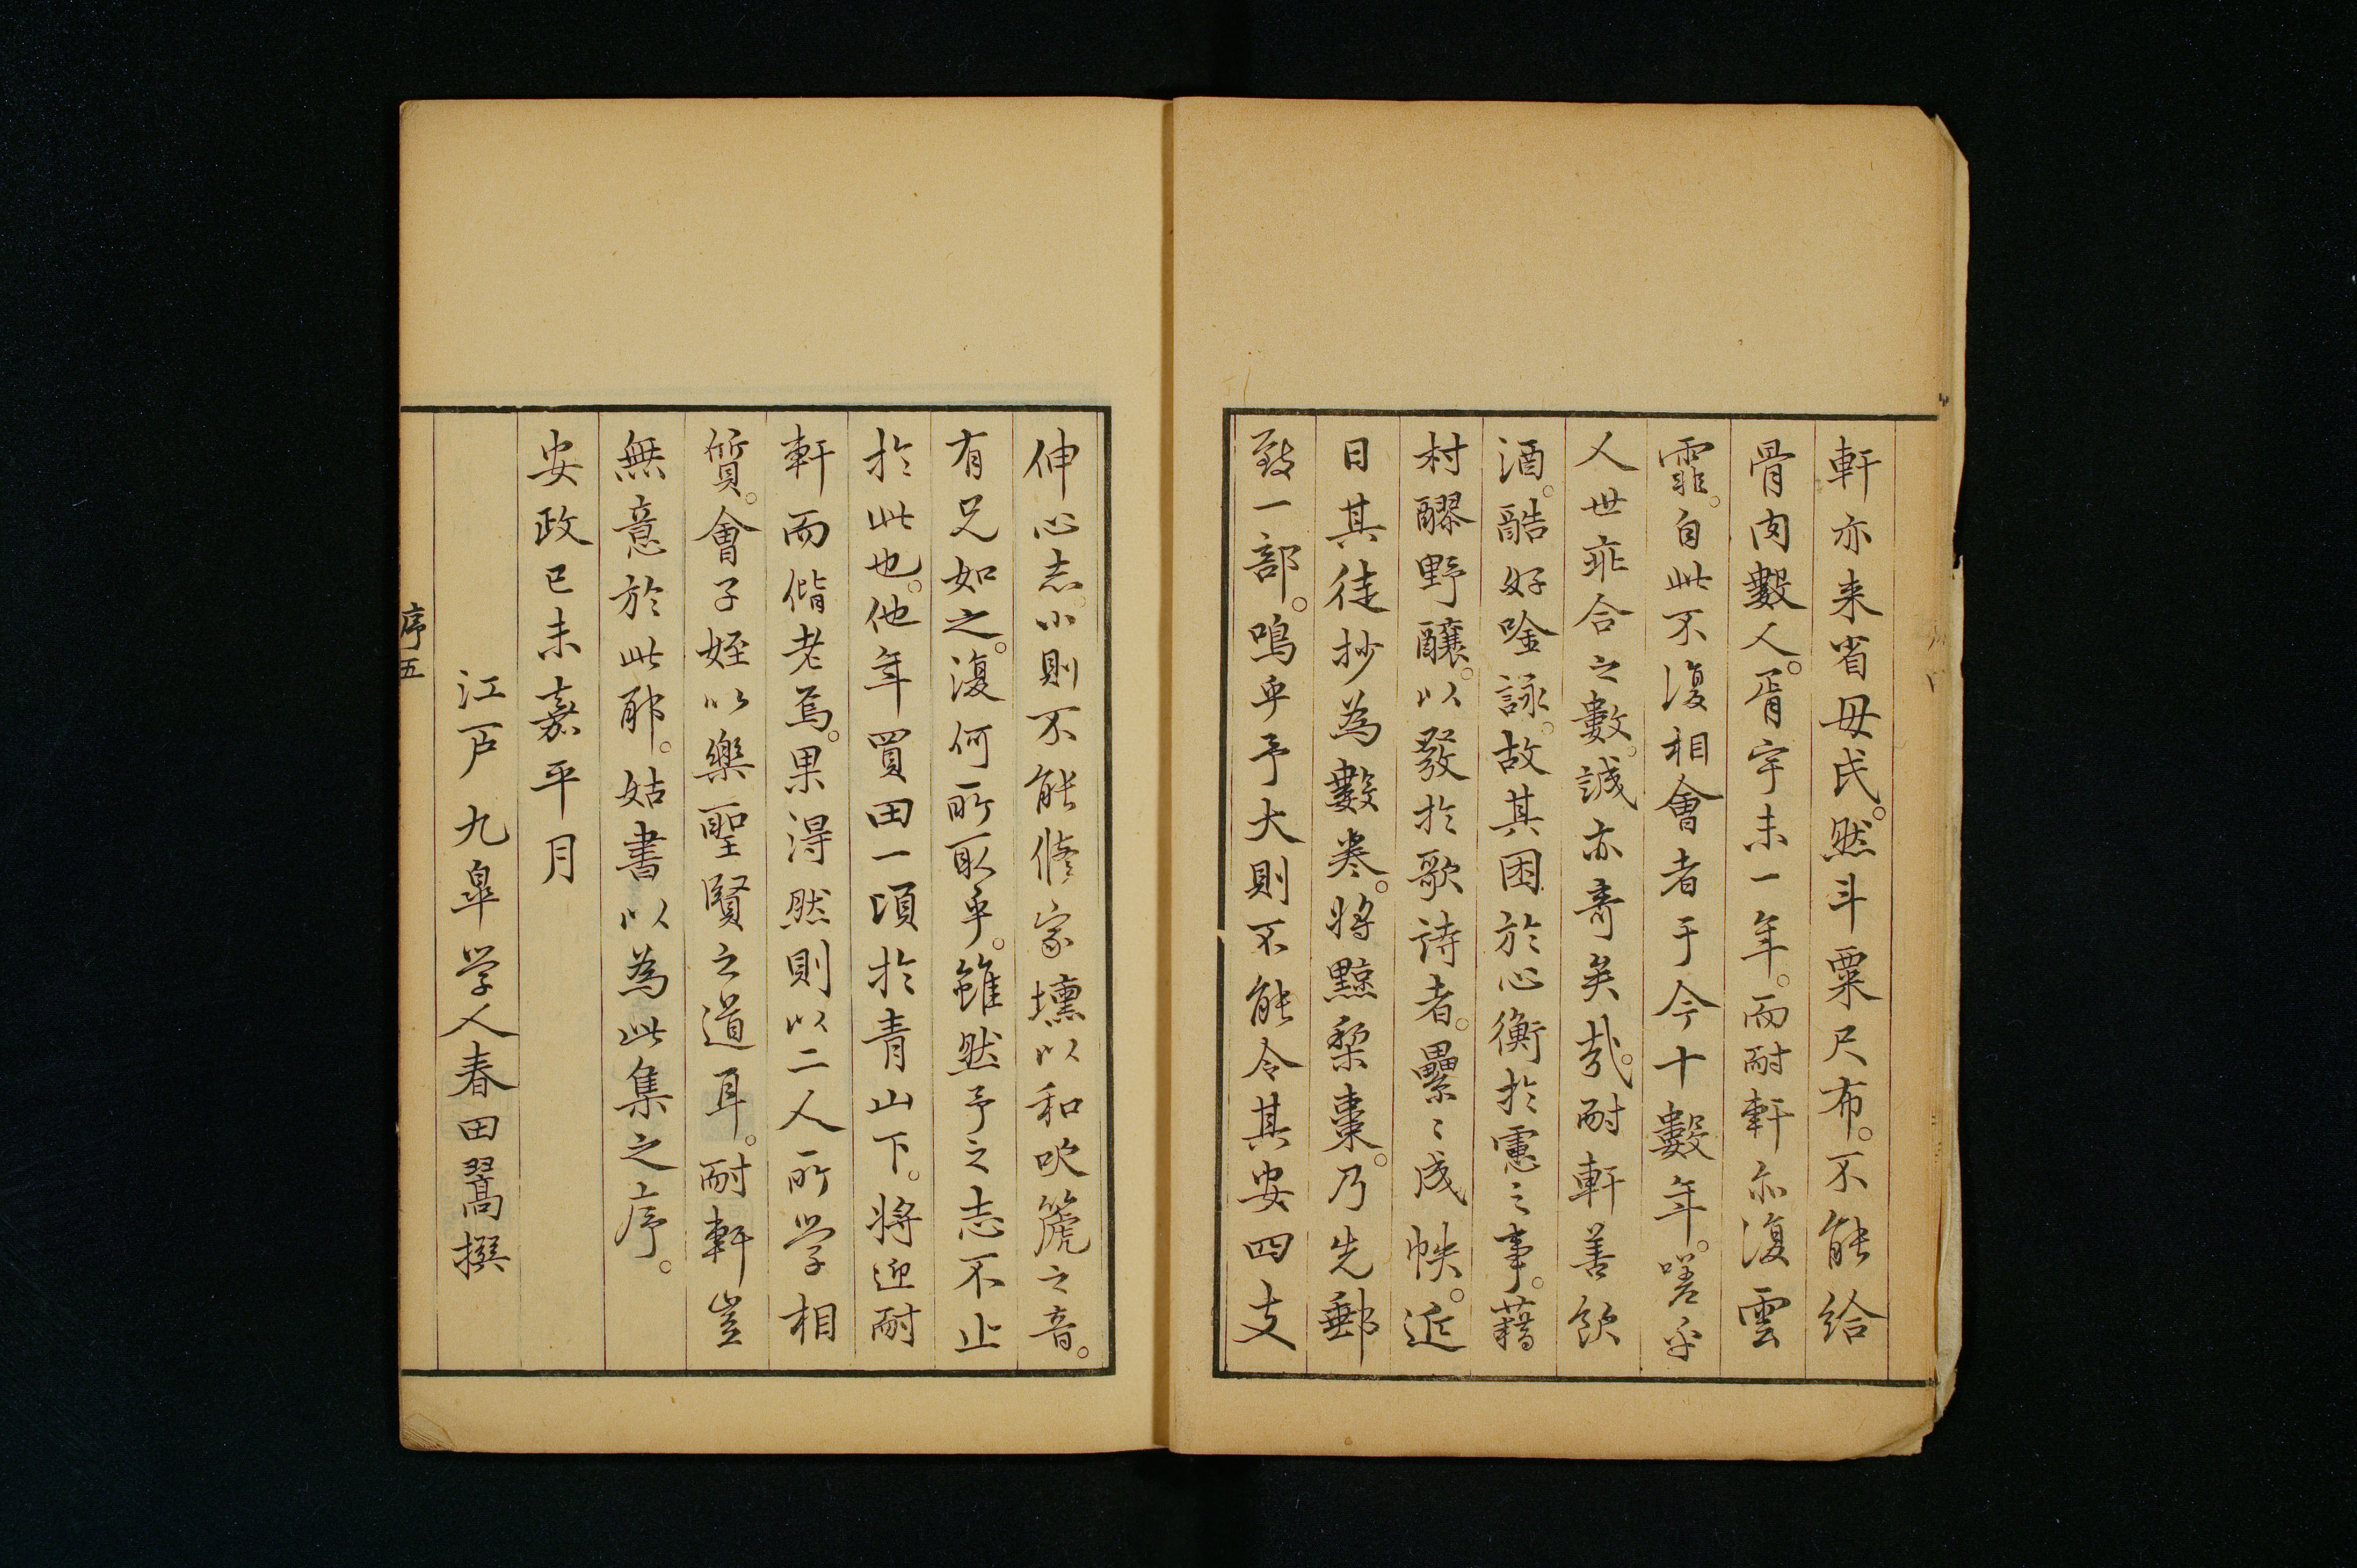 軒亦来省母氏。然斗粟尺布。不能給
骨肉數人。胥宇未一年。而耐軒亦復雲
霏。自此不復相會者于今十數年。嗟乎
人世乖合之數。誠亦奇矣哉。耐軒善飲
酒。酷好唫詠。故其困於心衡於慮之事。藉
村醪野釀。以發於歌詩者。纍〻成帙。近
日其徒抄為數巻。將黥梨棗。乃先郵
致一部。嗚乎予大則不能令其安四支
伸心志。小則不能修家壎以和吹篪之音。
有兄如之。復何所取乎。雖然予之志不止
於此也。他年買田一頃於青山下。将迎耐
軒而偕老焉。果得然則以二人所学相
質。會子姪以樂聖賢之道耳。耐軒豈
無意於此耶。姑書以為此集之序。
安政己未嘉平月
江戸九皐学人春田翯撰
序五